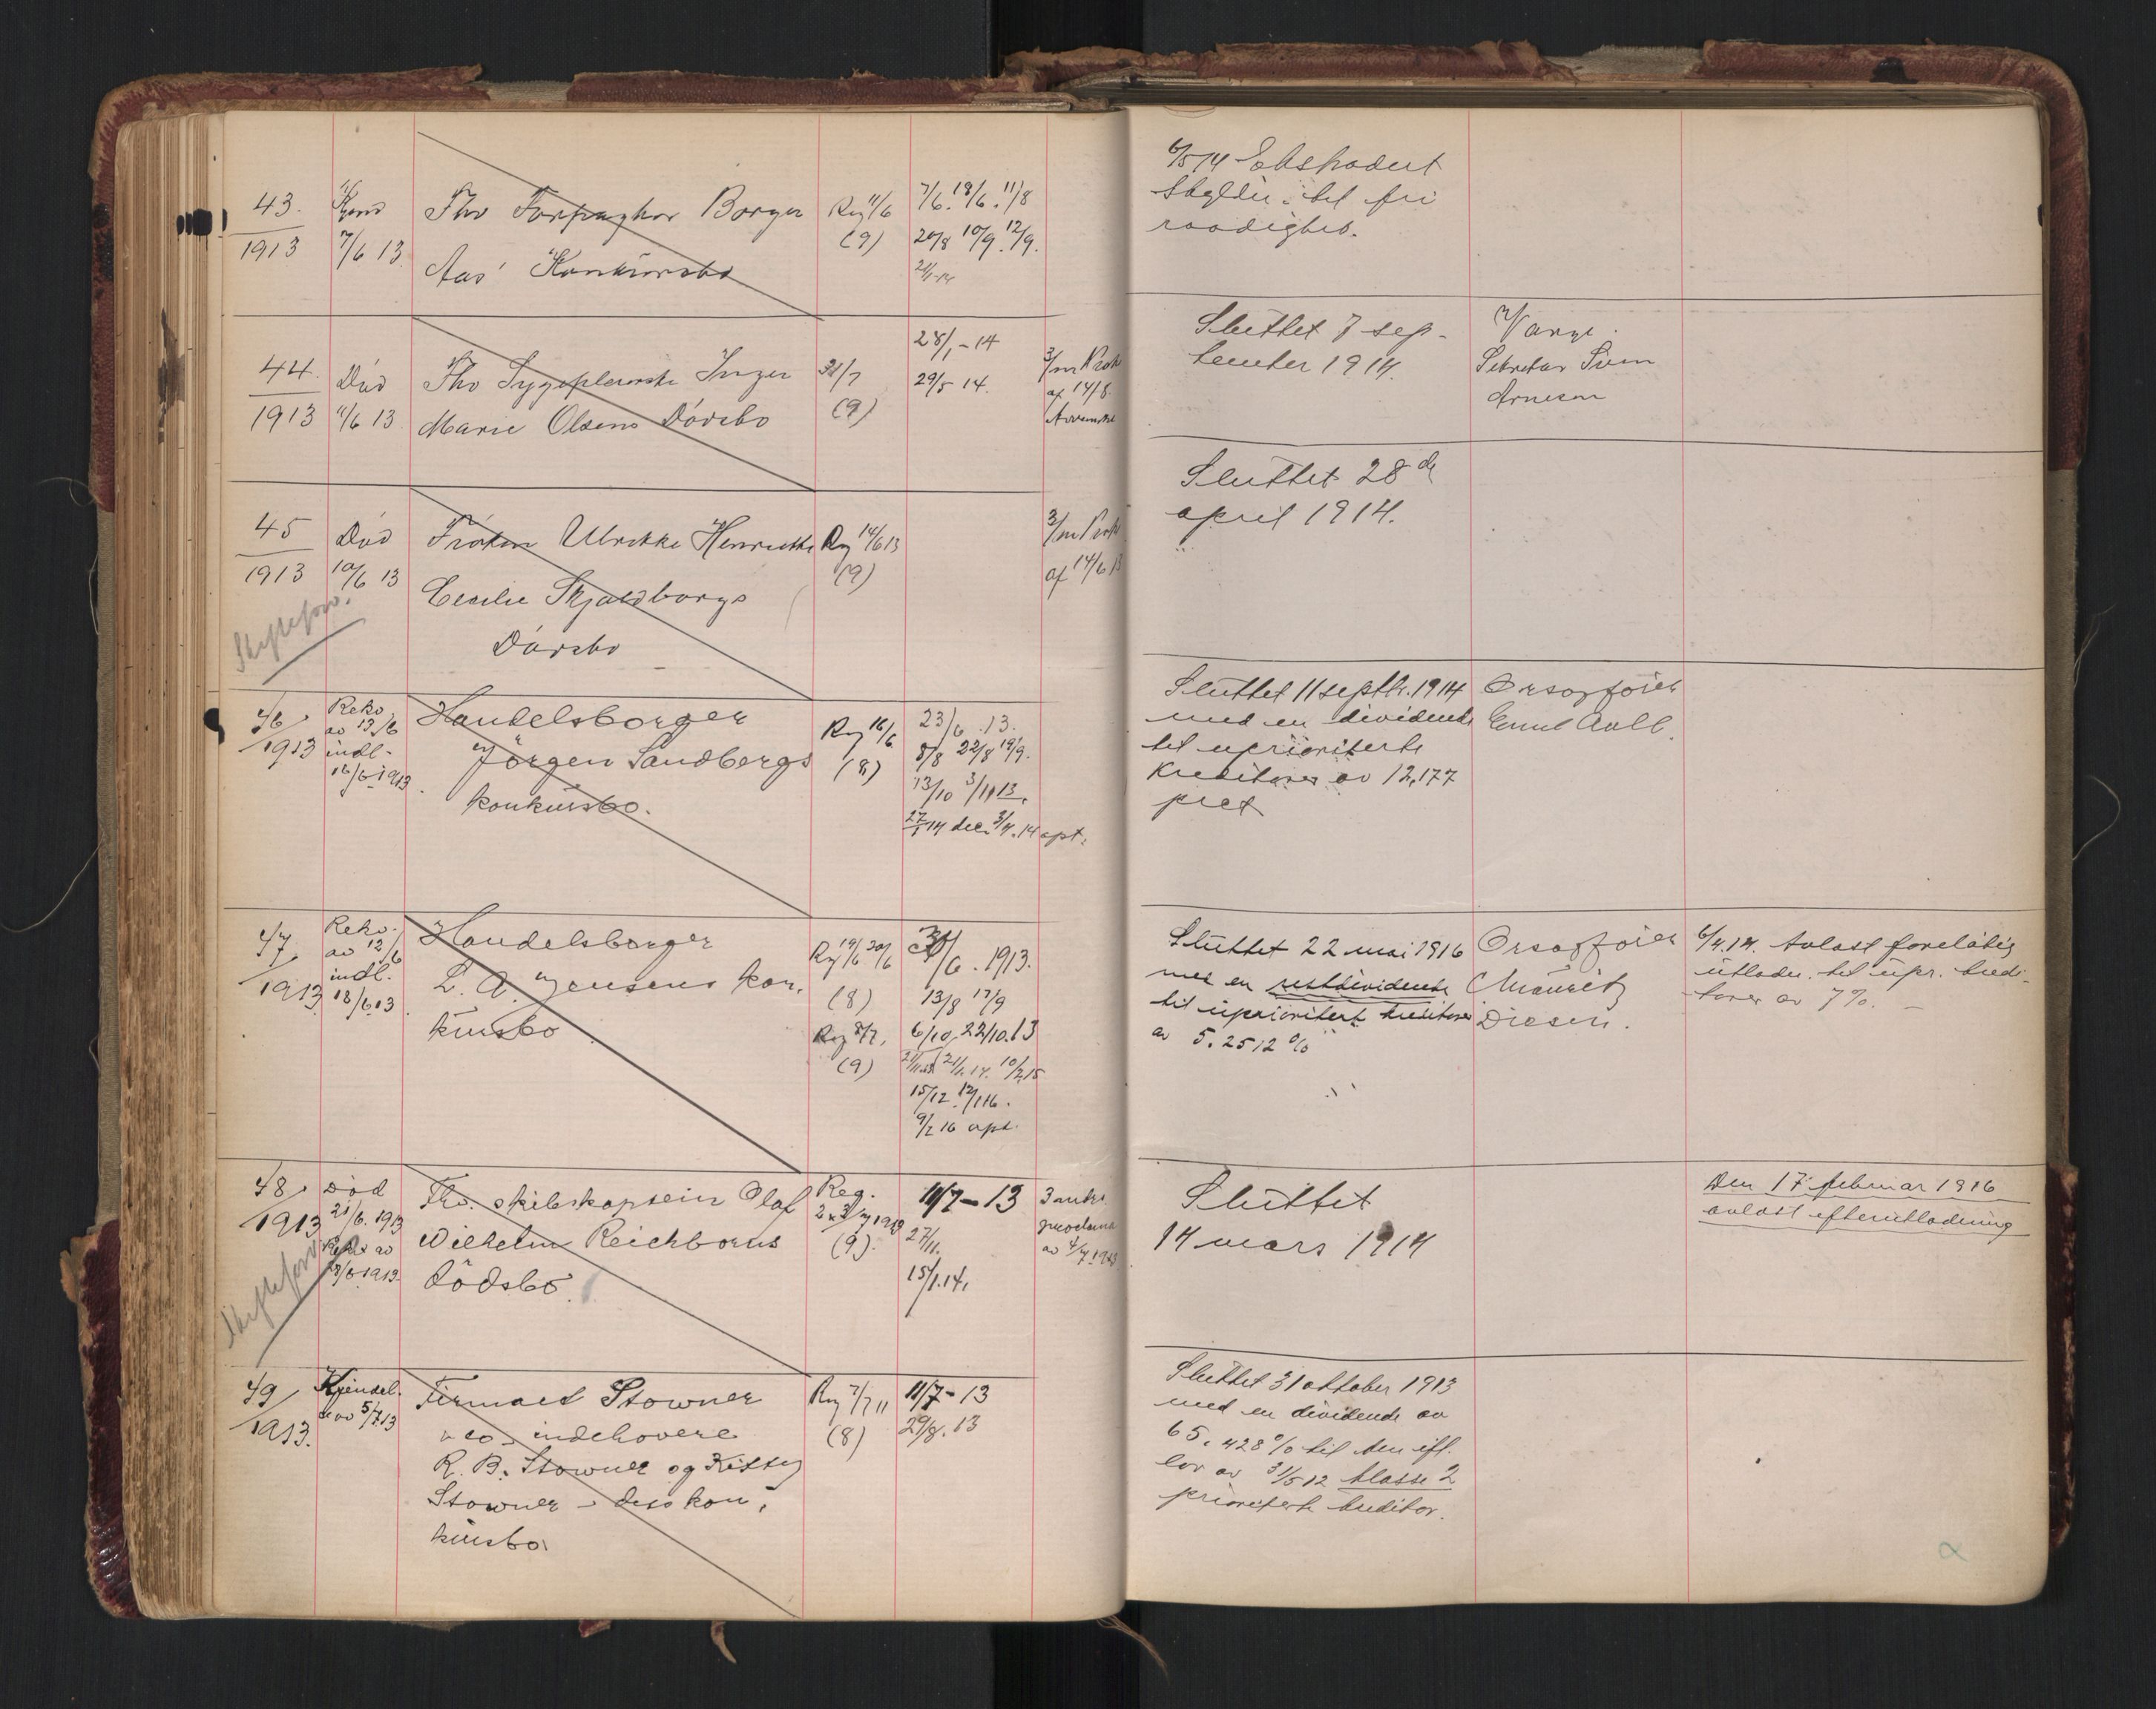 43.
1913
Kjend
7/6 13
Fhv Forpagter Borger
Aas' Konkursbo
Reg 11/6
(9)
7/6. 18/6. 11/8
20/8 10/9. 12/9.
6/5 14 Ekstradert
skyldn. til fri
raadighed.
44.
1913
Död
11/6 13
Fhv Sygepleierske Inger
Marie Olsens Dödsbo
31/7
(9)
28/1 - 14
29/5 14.
3/m Prok
af 14/8.
Sluttet 7 sep-
tember 1914.
Værge
Sekretær Sven
Arnesen
45
1913
Död
10/6 13
Skiftesforv.
Fröken Ulrikke Henriette
Cecilie Skjoldborgs
Dödsbo
Reg 14/6 13
(9)
3/m Prok
af 14/6 13
Sluttet 28de
april 1914.
46
1913
Rekv.
av 13/6
indl.
16/6 1913.
Handelsborger
Jörgen Sandbergs
konkursbo.
Reg 16/6
(8)
23/6 .13.
8/8 22/8 19/9.
13/10 3/11 13.
27/1 14 dec. 3/4.14 opt.
Sluttet 11 septbr. 1914
med en dividende
til uprioriterte
kreditorer av 12,177
pict
Orsagförer
Emil Aall.
47
1913
Rekv.
av 12/6
indl.
18/6 13
Handelsborger
L. A. Jensens kon-
kursbo
Reg 19/6 20/6
(8)
Reg 8/7,
(9)
/6. 1913.
13/8 17/9
6/10, 22/10.13
21/1.14. 10/2.15
15/12 12/1 16.
9/2 16 opt.
Sluttet 22 mai 1916
med en restdividende
til uprioritert kreditorer
av 5.2512 %
Orsagförer
Mauritz
Diesen.
6/4.14. Avlast foreløbig
utlodn. til upr. kredi-
torer av 7%. -
48
1913
Död
21/6. 1913
Rekv. av
1913
Skiftesforv.
Fhv. skibskaptein Olaf
Wilhelm Reichborns
dödsbo.
Reg.
1913
(9).
11/7 - 13
27/11.
15/1.14,
3 mdrs
proclama
av 4/7 1913
Sluttet
14 mars 1914
Den 17 februar 1916
avlast efterutlodning
49
1913.
Kjendel-
se av 5/7 13
Firmaet Stowner
& co, indehavere
R. B. Stowner og Kitty
Stowner - dets kon-
kursbo
Reg 7/7 11
(8)
11/7 - 13
29/8. 13
Sluttet 31 oktober 1913
med en dividende av
65.428 % til den ifl.
lov av 31/5 12 klasse 2
prioriterte kreditor.